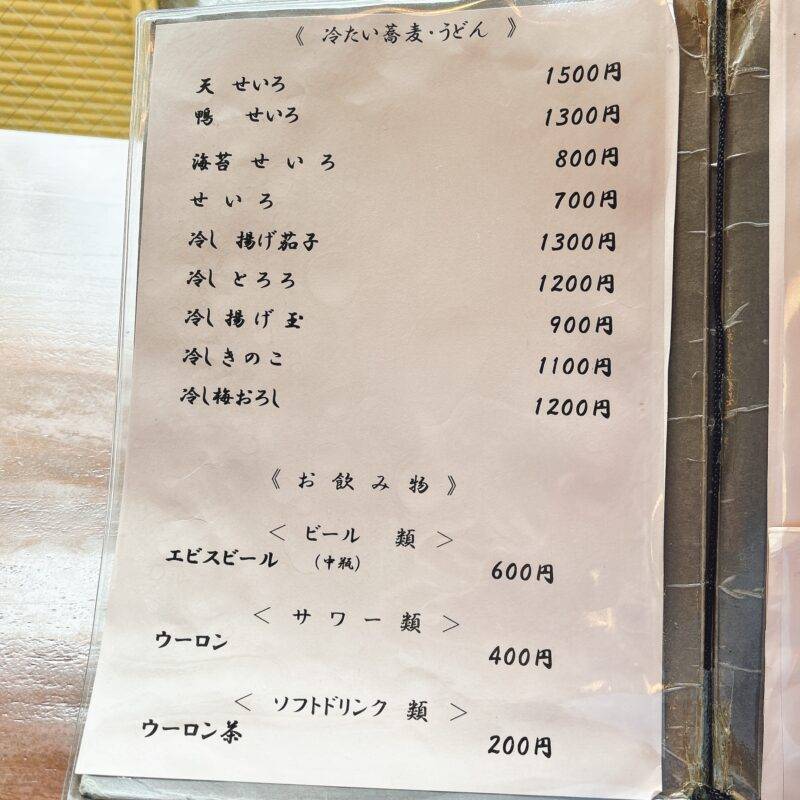 《 冷たい蕎麦・うどん 》
天 せいろ 1500円
鴨 せいろ 1300円
海苔 せ い ろ 800円
せ い ろ 700円
冷し 揚げ茄子 1300円
冷し とろろ 1200円
冷し 揚げ 玉 900円
冷し きのこ 1100円
冷し梅おろし 1200円
《 お 飲 み 物 》
< ビール 類 >
エビスビール (中瓶) 600円
< サ ワ ー 類 >
ウーロン 400円
< ソフトドリンク 類 >
ウーロン茶 200円